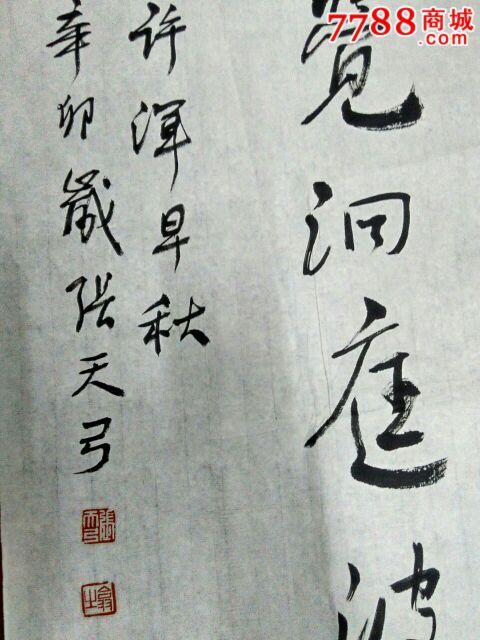 覺洞庭波
许浑早秋
辛卯歲张天弓
7788商城
.com